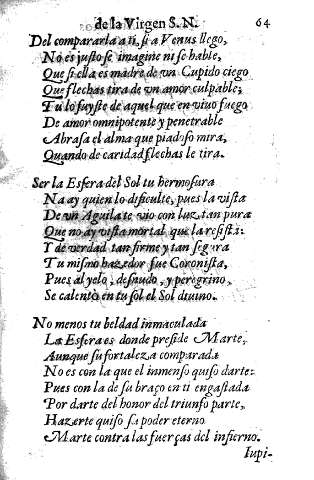 de la Virgen S. N. 64
Del compararla a ti, si a Venus llego,
No es justo se imagine ni se hable,
Que si ella es madre de vn Cupido ciego
Que flechas tira de vn amor culpable;
Tu lo fuyste de aquel que en viuo fuego
De amor omnipotente y penetrable
Abrasa el alma que piadoso mira,
Quando de caridad flechas le tira.
Ser la Esfera del Sol tu hermosura
No ay quien lo dificulte, pues la vista
De vn Aguila te vio con luz tan pura
Que no ay vista mortal que la resista:
Y de verdad tan firme y tan segura
Tu mismo hazedor fue Coronista,
Pues al yelo, desnudo, y peregrino,
Se calentò en tu sol el Sol diuino.
No menos tu beldad inmaculada
La Esfera es donde preside Marte,
Aunque su fortaleza comparada
No es con la que el inmenso quiso darte:
Pues con la de su braço en ti engastada
Por darte del honor del triunfo parte,
Hazerte quiso su poder eterno
Marte contra las fuerças del infierno.
Iupi-